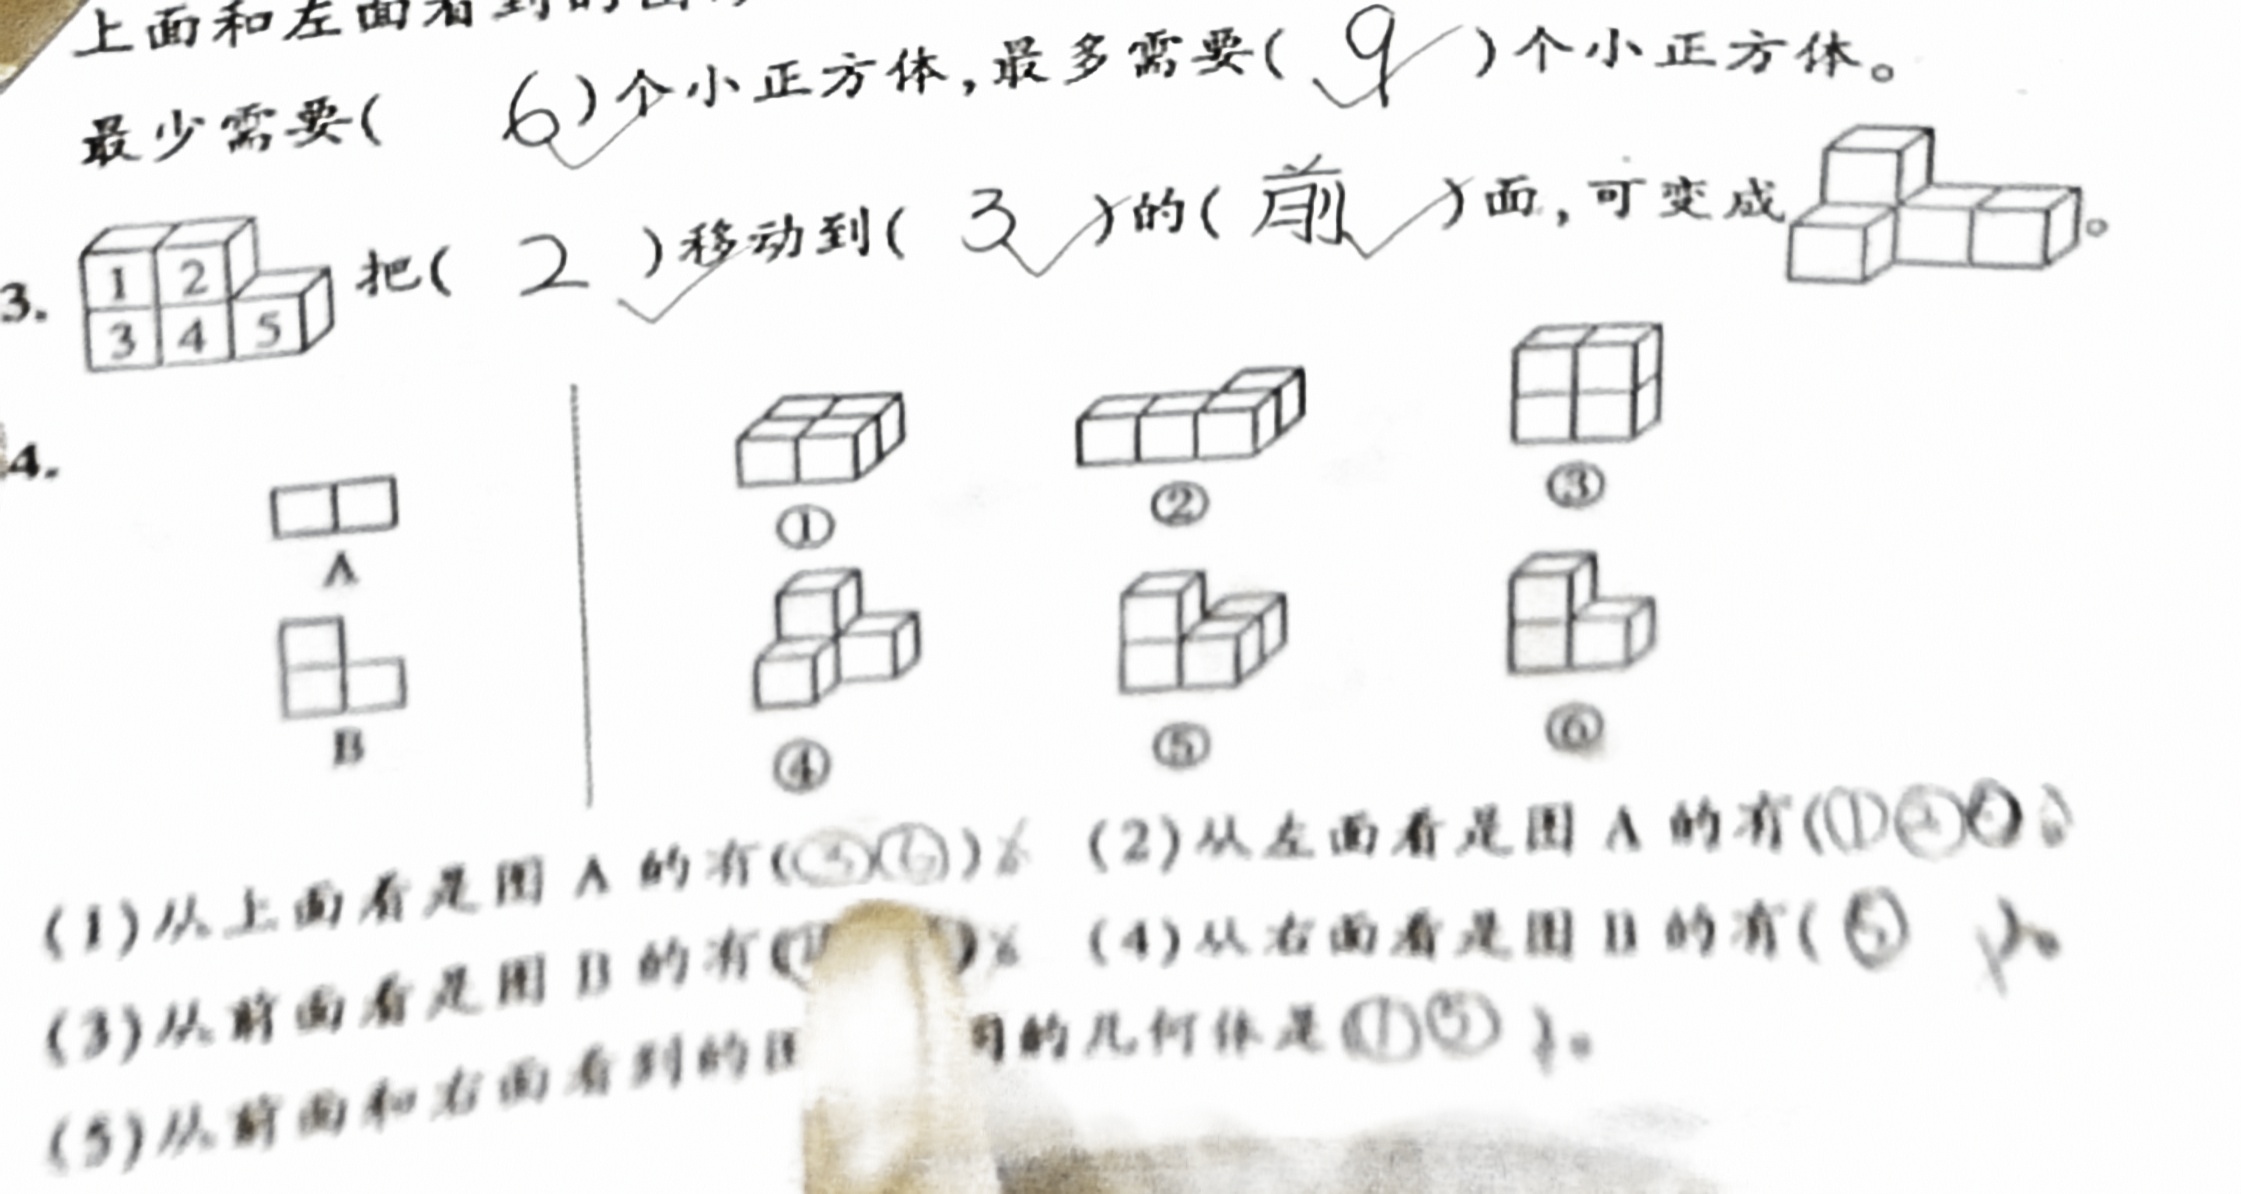 上面和左面看到的
最少需要( 6 )个小正方体,最多需要( 9 )个小正方体。
3. 1 2 3 4 5 把( 2 )移动到( 3 )的( 前 )面,可变成 。
4.
① ② ③
A
④ ⑤ ⑥
B
(1)从上面看是图 A 的有(③⑥)。 (2)从左面看是图 A 的有(①②
(3)从前面看是图 B 的有( )。 (4)从右面看是图 B 的有( ⑤ )。
(5)从前面和右面看到的 的几何体是(①⑤ )。